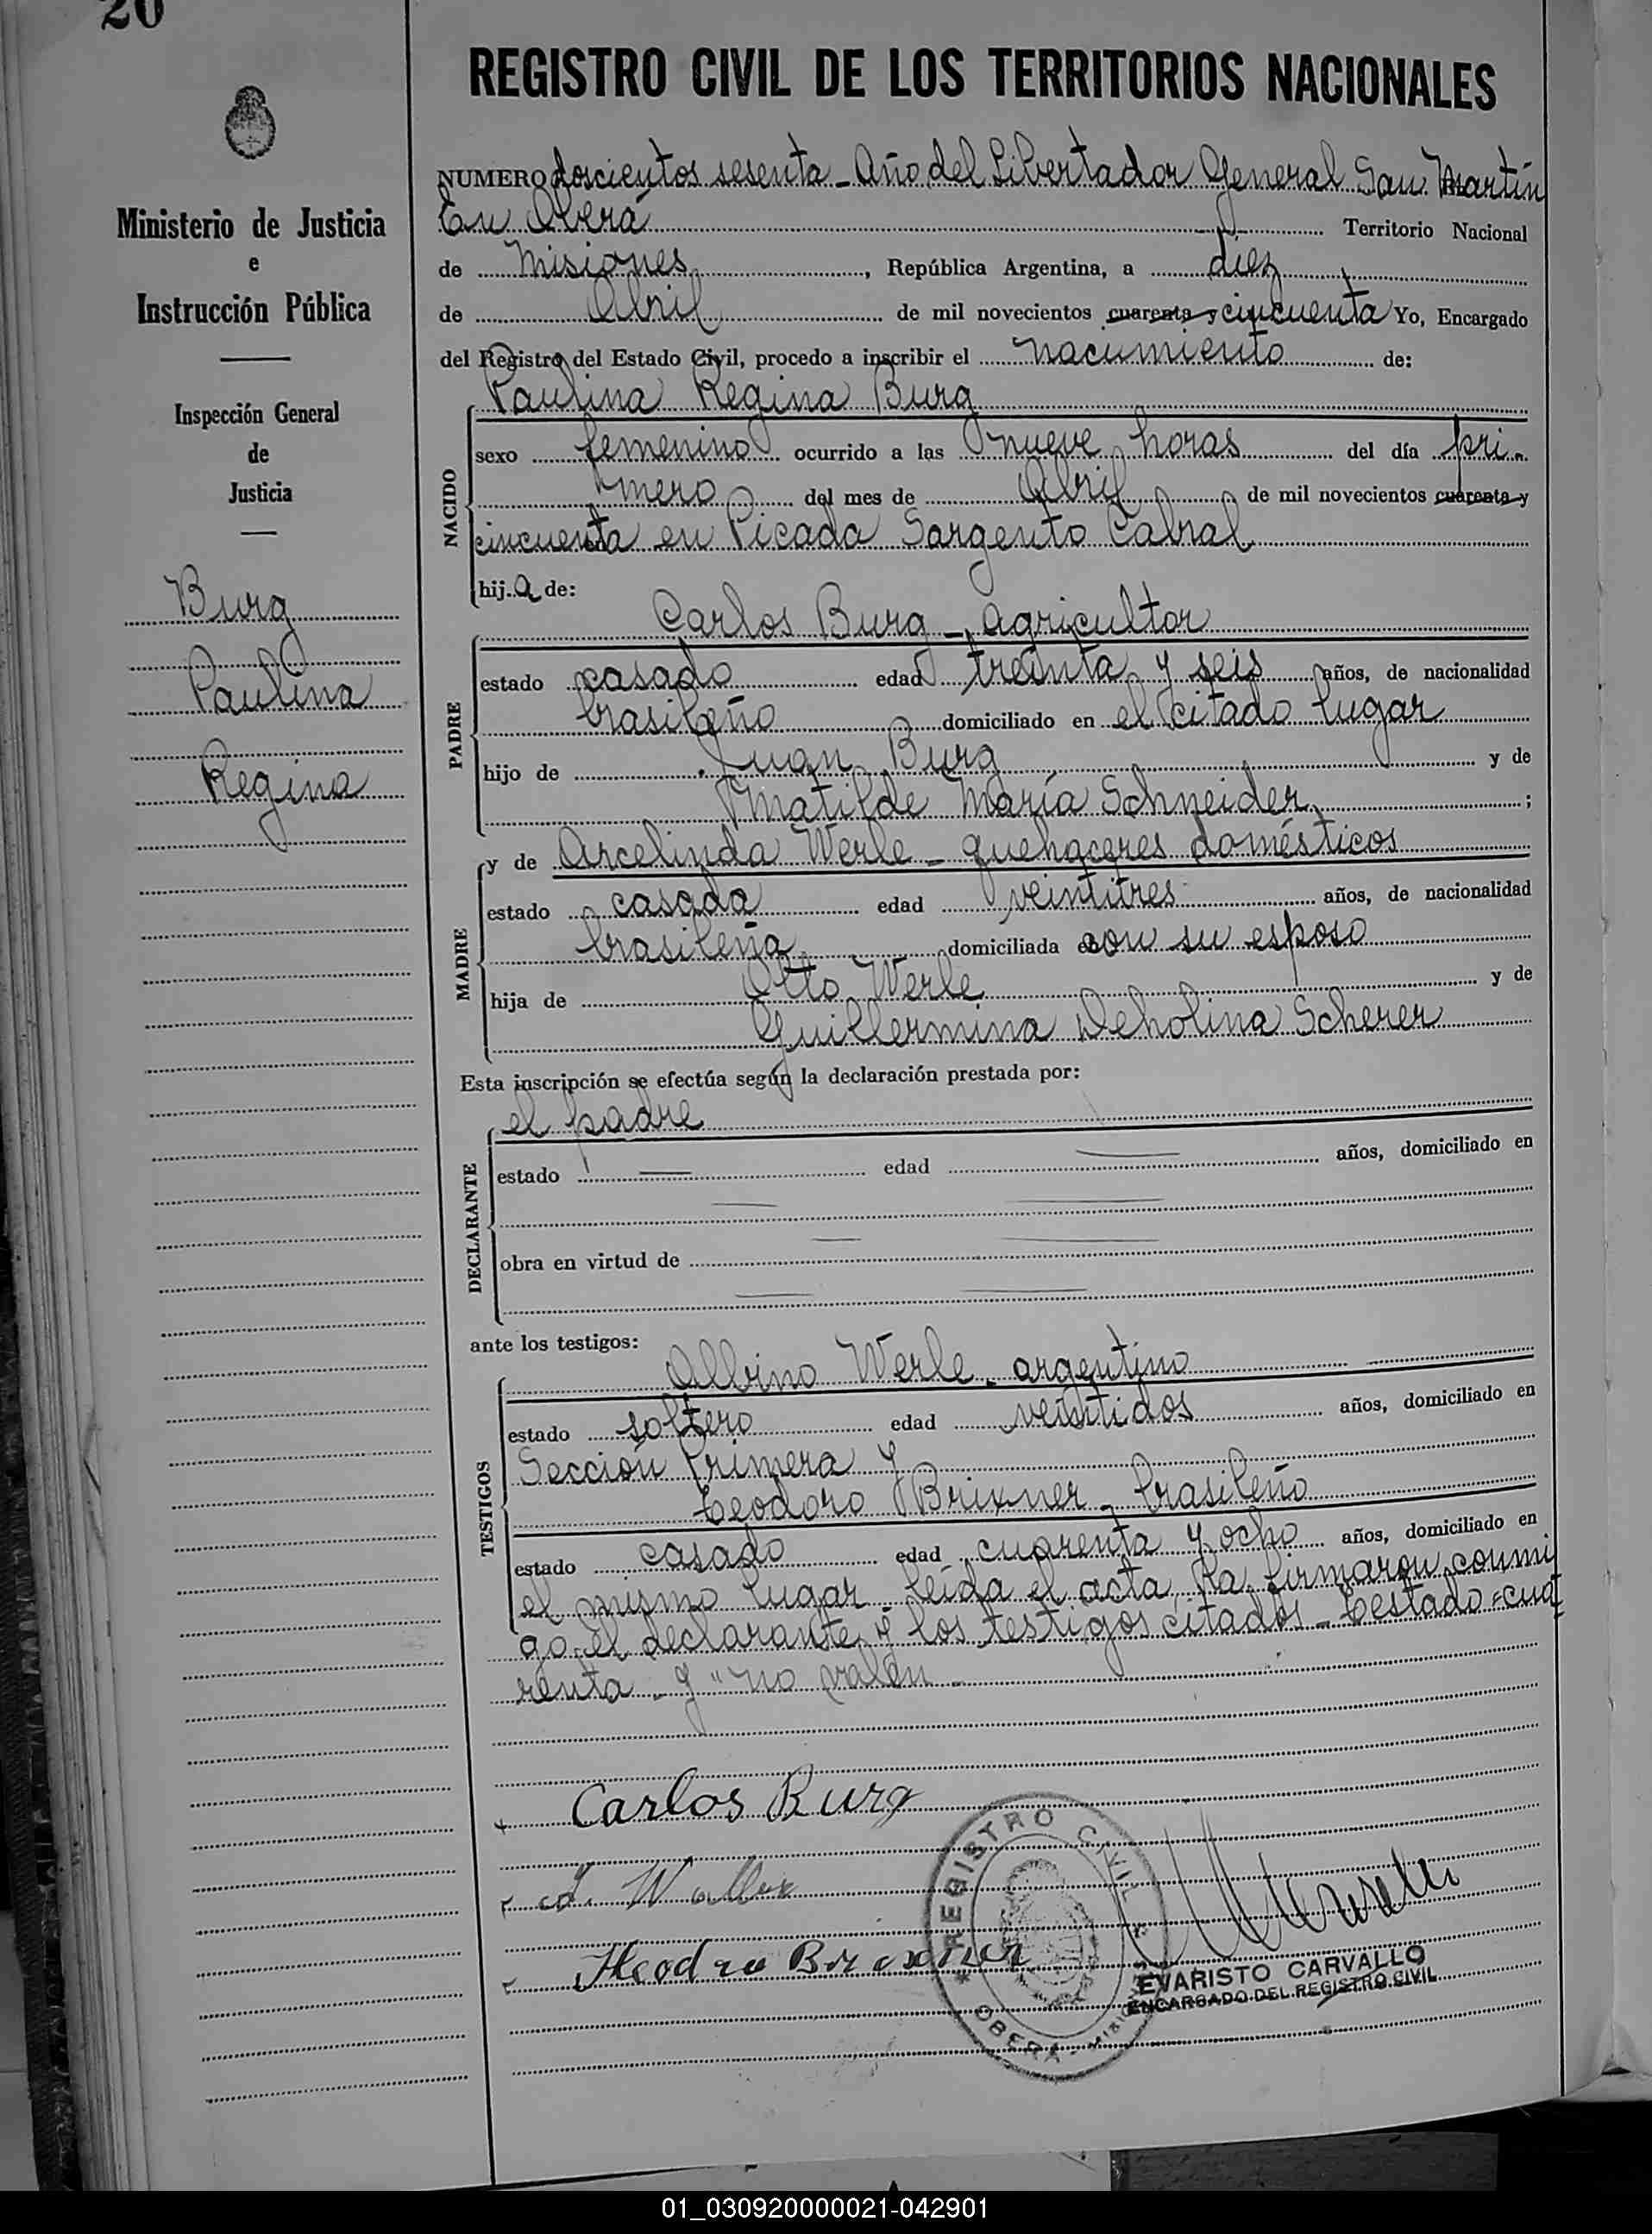 20
REGISTRO CIVIL DE LOS TERRITORIOS NACIONALES
Ministerio de Justicia
e
Instrucción Pública
Inspección General
de
Justicia
Burg
Paulina
Regina
NUMERO doscientos sesenta - Año del Libertador General San Martín
En Oberá Territorio Nacional
de Misiones, República Argentina, a diez
de Abril de mil novecientos cuarenta y cincuenta Yo, Encargado
del Registro del Estado Civil, procedo a inscribir el nacimiento de:
Paulina Regina Burg
NACIDO
sexo femenino ocurrido a las nueve horas del día pri-
mero del mes de Abril de mil novecientos cuarenta y
cincuenta en Picada Sargento Cabral
hija de:
PADRE
Carlos Burg - agricultor
estado casado edad treinta y seis años, de nacionalidad
brasileño domiciliado en el citado lugar
hijo de Juan Burg y de
Matilde María Schneider;
MADRE
y de Arcelinda Werle - quehaceres domésticos
estado casada edad veintitres años, de nacionalidad
brasileña domiciliada con su esposo
hija de Otto Werle y de
Guillermina Deholina Scherer
Esta inscripción se efectúa según la declaración prestada por:
DECLARANTE
el padre
estado edad años, domiciliado en
obra en virtud de
ante los testigos:
TESTIGOS
Albino Werle - argentino
estado soltero edad veintidos años, domiciliado en
Sección Primera y
Teodoro Brixner - brasileño
estado casado edad cuarenta y ocho años, domiciliado en
el mismo lugar - leída el acta, la firmaron conmi
go el declarante y los testigos citados - Testado = cua
renta - y " no valen -
Carlos Burg
A. W
Theodro Brixner
REGISTRO CIVIL
OBERA - MISIONES
EVARISTO CARVALLO
ENCARGADO DEL REGISTRO CIVIL
01_030920000021-042901